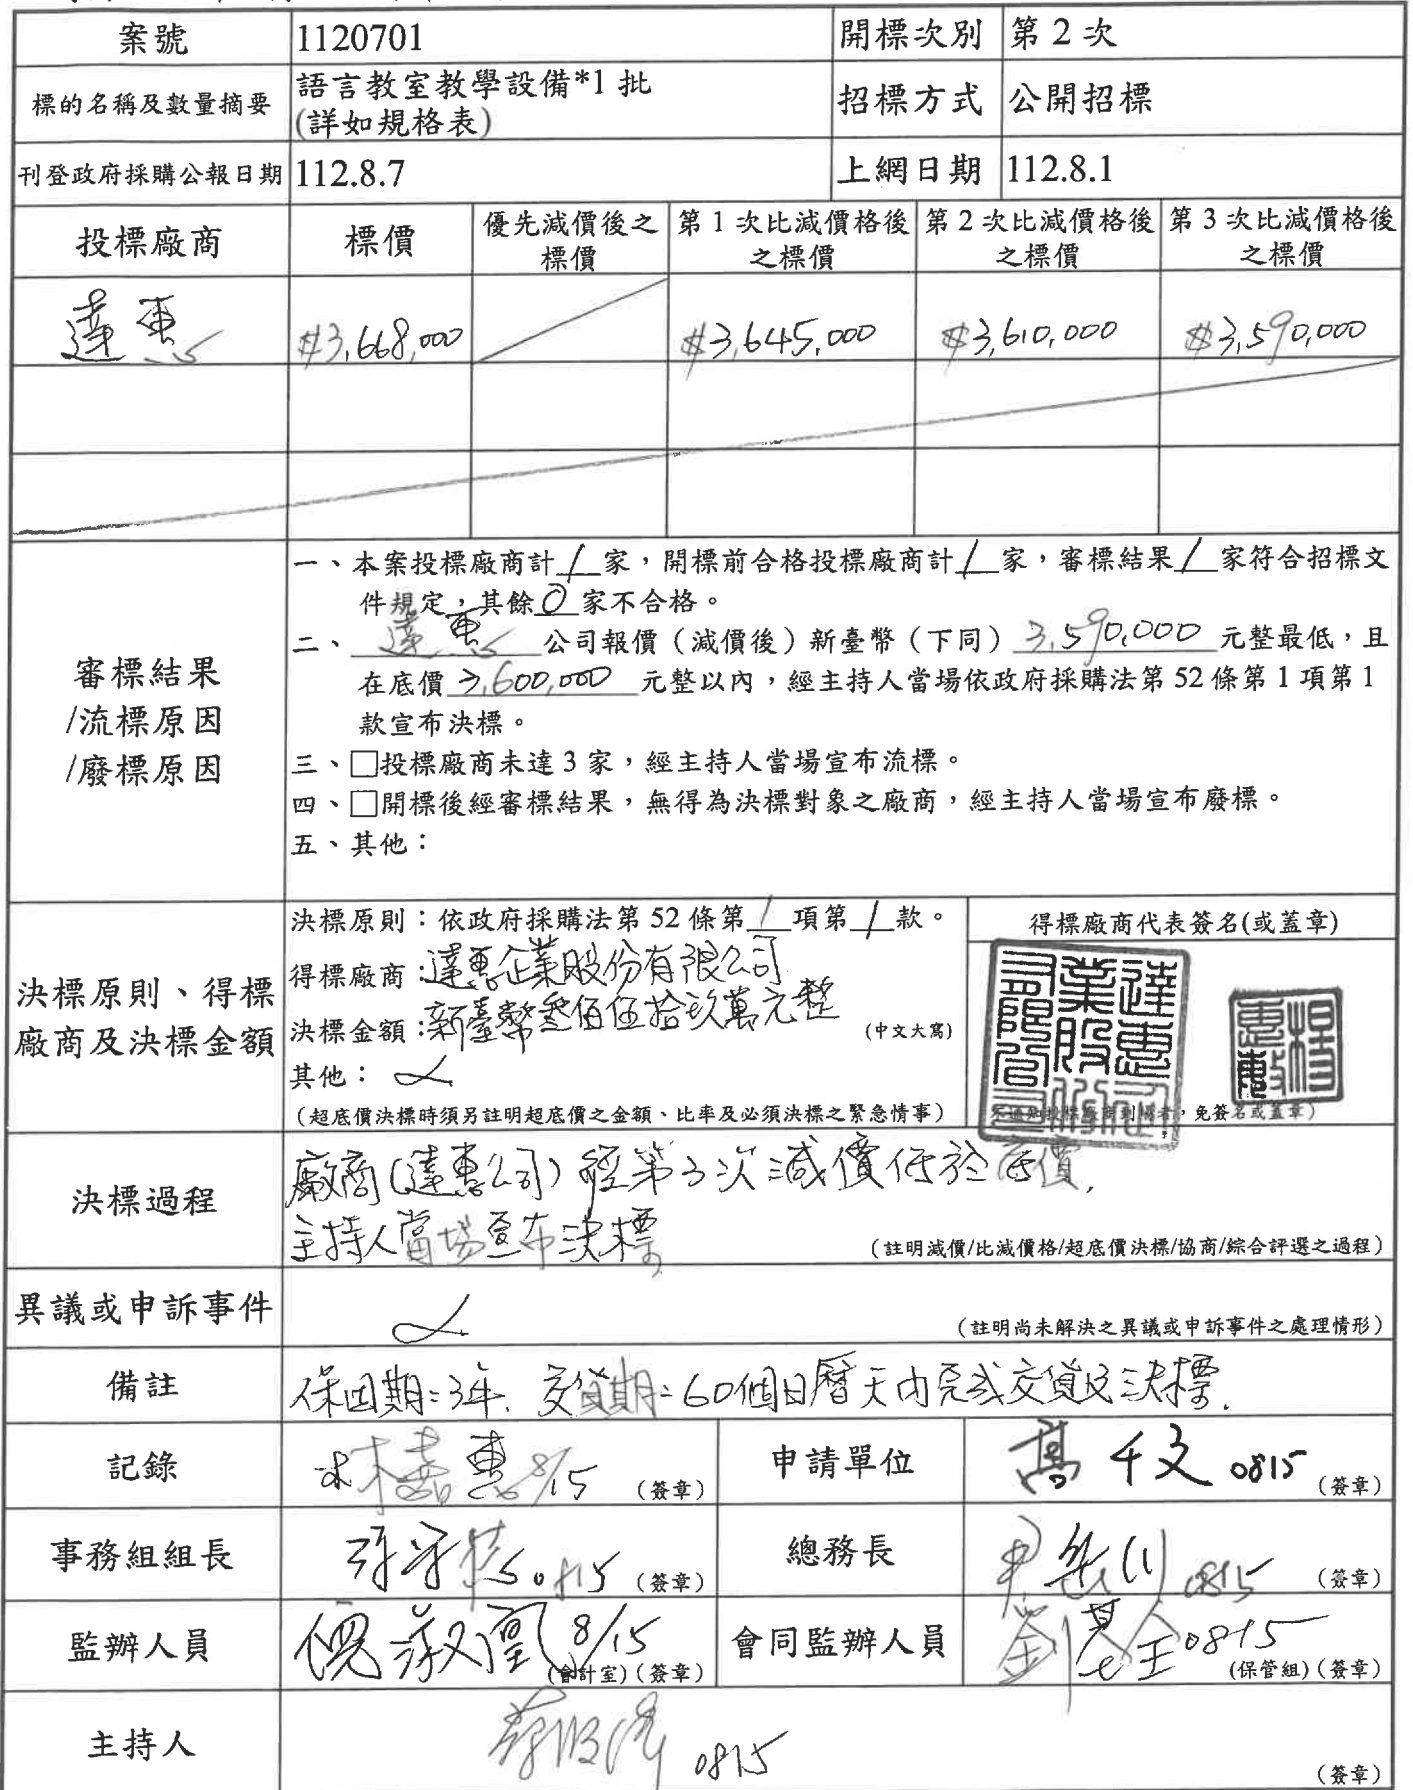 案號 1120701 開標次別 第 2 次
標的名稱及數量摘要 語言教室教學設備*1 批
(詳如規格表) 招標方式 公開招標
刊登政府採購公報日期 112.8.7 上網日期 112.8.1
投標廠商 標價 優先減價後之標價 第 1 次比減價格後之標價 第 2 次比減價格後之標價 第 3 次比減價格後之標價
達惠 $3,668,000 $3,645,000 $3,610,000 $3,590,000
審標結果
/流標原因
/廢標原因
一、本案投標廠商計 1 家,開標前合格投標廠商計 1 家,審標結果 1 家符合招標文
件規定,其餘 0 家不合格。
二、 達惠 公司報價(減價後)新臺幣(下同) 3,590,000 元整最低,且
在底價 3,600,000 元整以內,經主持人當場依政府採購法第 52 條第 1 項第 1
款宣布決標。
三、□投標廠商未達 3 家,經主持人當場宣布流標。
四、□開標後經審標結果,無得為決標對象之廠商,經主持人當場宣布廢標。
五、其他:
決標原則、得標
廠商及決標金額
決標原則:依政府採購法第 52 條第 1 項第 1 款。
得標廠商:達惠企業股份有限公司
決標金額:新臺幣叁佰伍拾玖萬元整 (中文大寫)
其他:
(超底價決標時須另註明超底價之金額、比率及必須決標之緊急情事)
得標廠商代表簽名(或蓋章)
達惠企業股份有限公司
,免簽名或蓋章)
決標過程 廠商(達惠公司)經第3次減價低於底價,
主持人當場宣布決標。
(註明減價/比減價格/超底價決標/協商/綜合評選之過程)
異議或申訴事件 (註明尚未解決之異議或申訴事件之處理情形)
備註 保固期:3年. 交貨期:60個日曆天內完成交貨及決標.
記錄 8/15 (簽章) 申請單位 高千文 0815 (簽章)
事務組組長 0815 (簽章) 總務長 0815 (簽章)
監辦人員 8/15 (會計室)(簽章) 會同監辦人員 0815 (保管組)(簽章)
主持人 0815 (簽章)